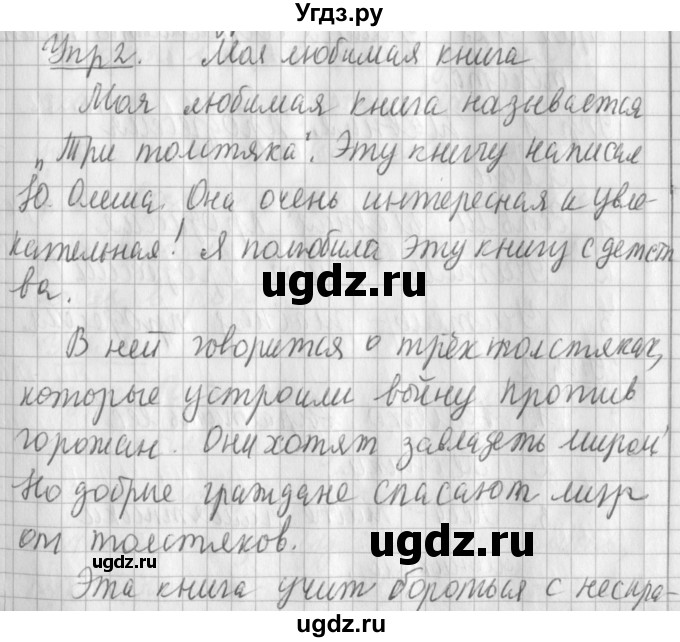 Угдз.ру
Упр 2. Моя любимая книга
Моя любимая книга называется
„Три толстяка". Эту книгу написал
Ю. Олеша. Она очень интересная и увле-
кательная! Я полюбила эту книгу с детст
ва.
ugdz.ru
В ней говорится о трёх толстяках,
которые устроили войну против
ugdz.ru
горожан. Они хотят завладеть миром!
Но добрые граждане спасают мир
от толстяков.
ugdz.ru
Эта книга учит бороться с неспра-
ugdz.ru